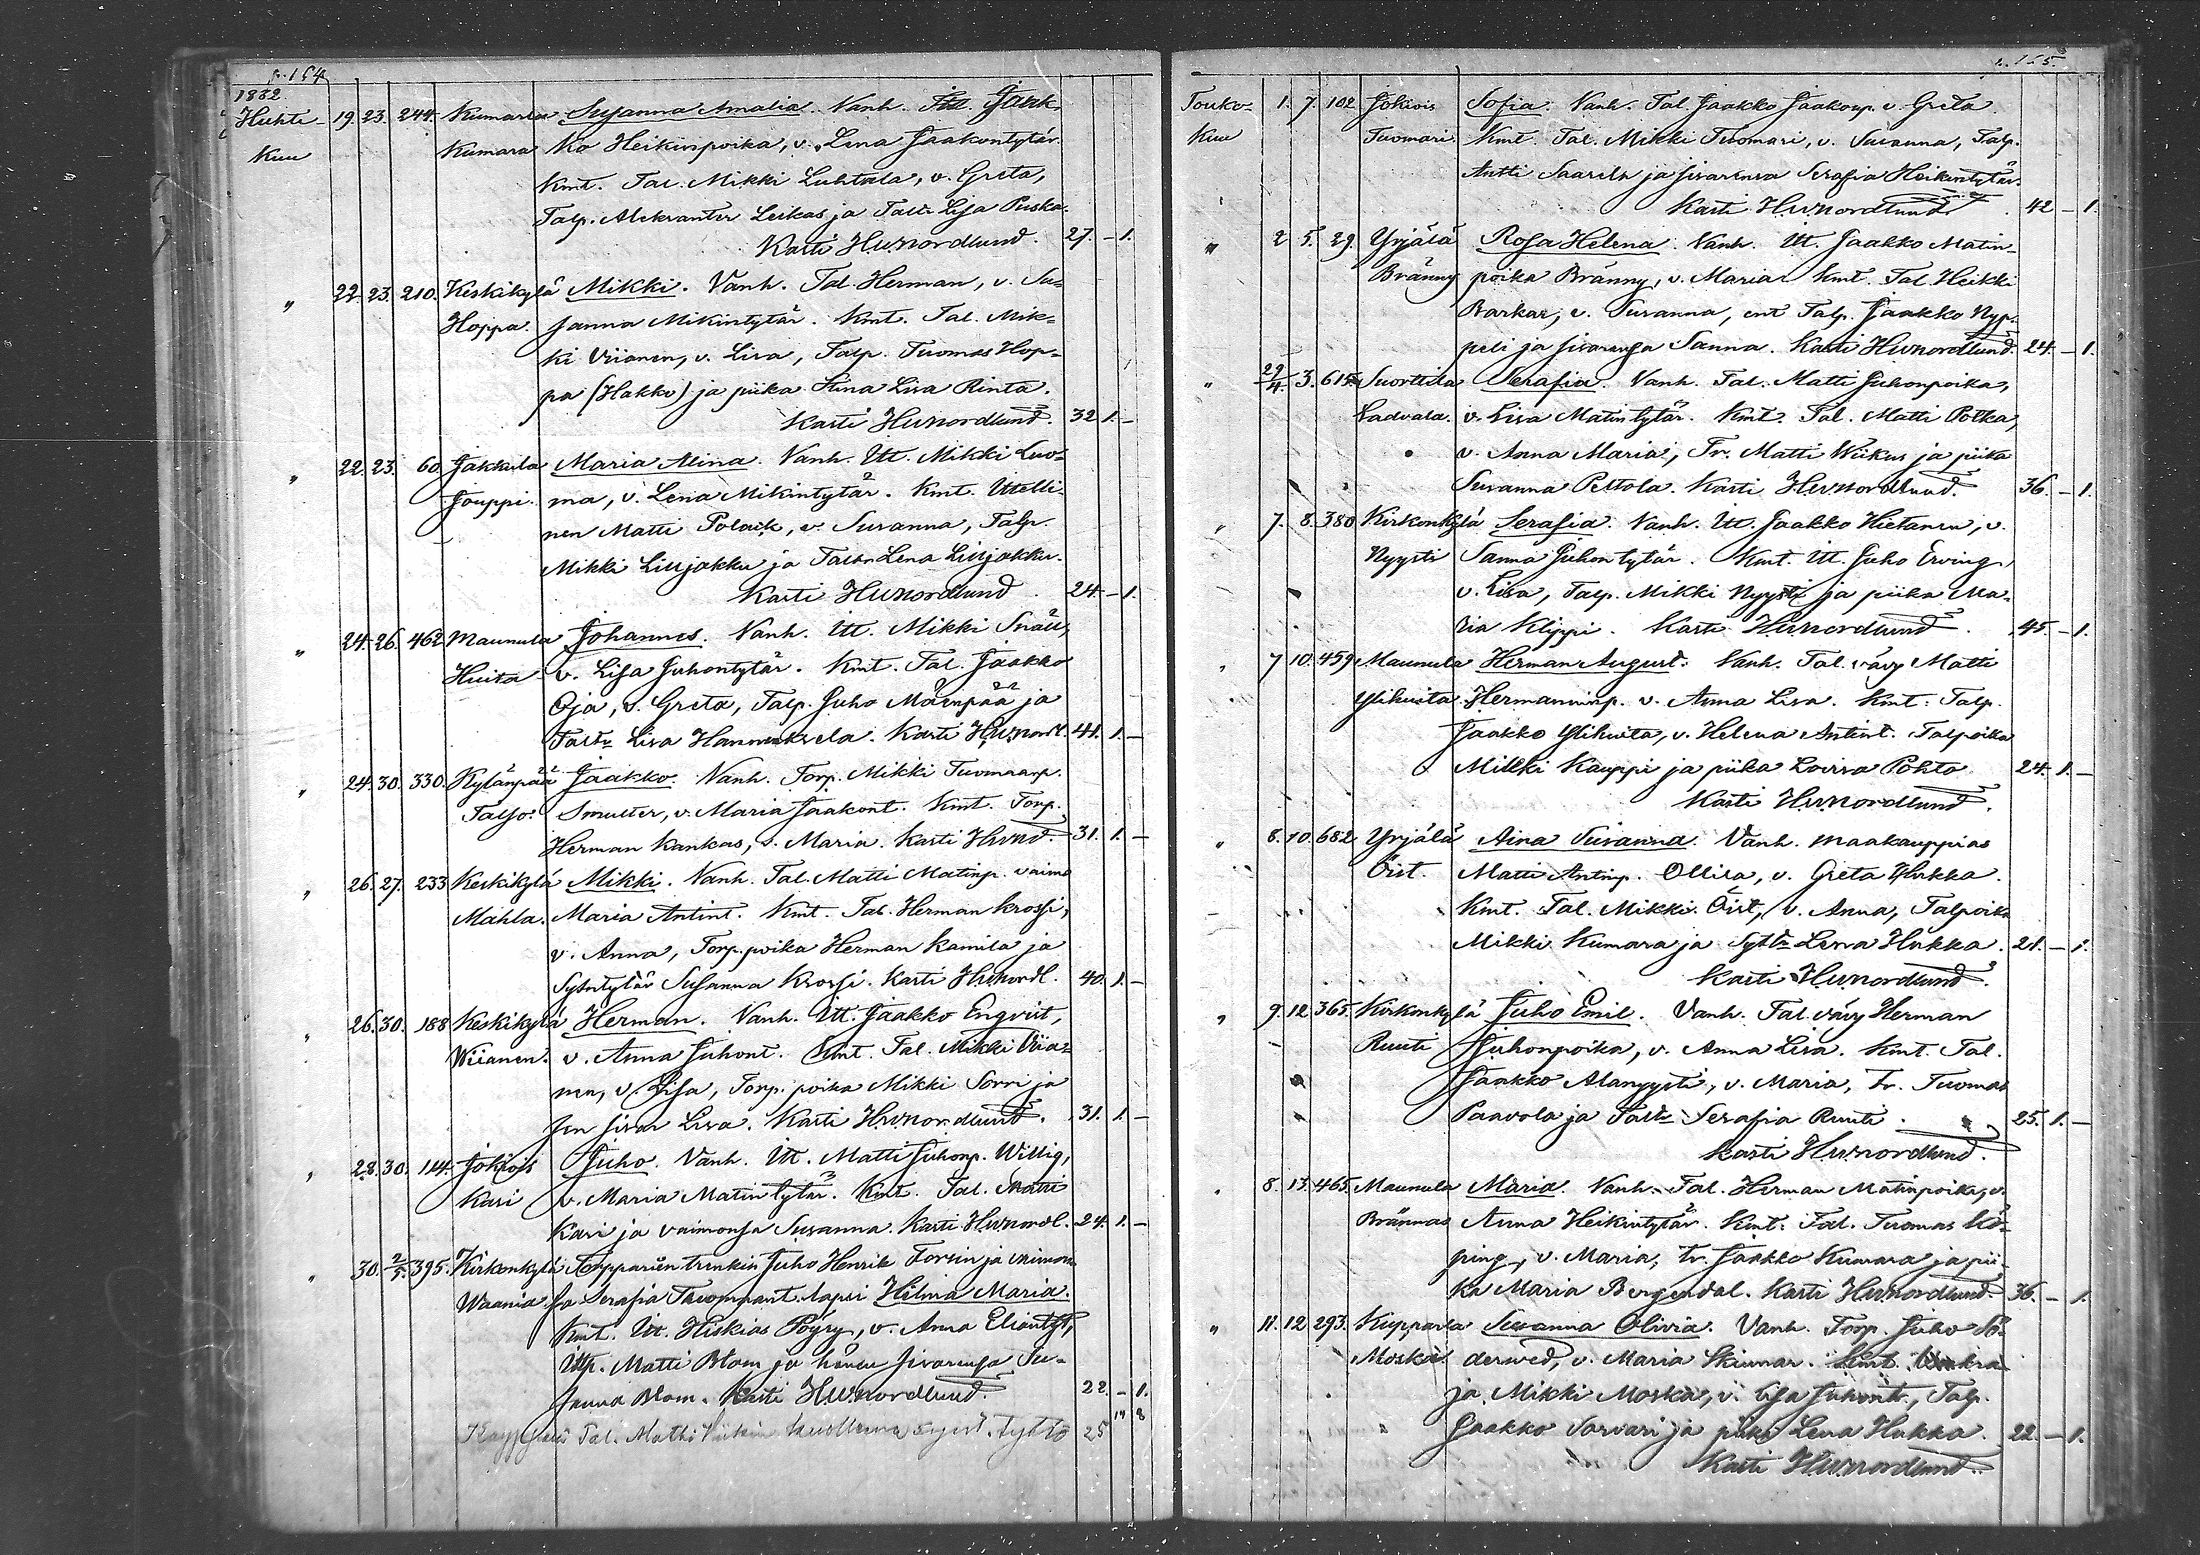 p. 154
1882
Huhti- 19. 23. 244. Kumarla Susanna Amalia. Vanh. Tal. Jaak-
kuu Kumara ko Heikinpoika, v. Lena Jaakontytär.
Kmt. Tal. Mikki Luhtala, v. Greta,
Talp. Aleksanter Leikas ja Taltr Lisa Puska.
Kasti HWNordlund. 27. – 1.
" 22. 23. 210. Keskikylä Mikki. Vanh. Tal. Herman, v. Su-
Hoppa. sanna Mikintytär. Kmt. Tal. Mik-
ki Viianen, v. Lisa, Talp. Tuomas Hop-
pa (Hakko) ja piika Stina Lisa Rinta.
Kasti HWNordlund. 32 1. –
" 22. 23. 60. Jakkula Maria Alina. Vanh. Itt. Mikki Luo-
Jouppi. ma, v. Lena Mikintytär. Kmt. Ittelli-
nen Matti Polack, v. Susanna, Talp.
Mikki Lilljakku ja Taltr Lena Lilljakku.
Kasti HWNordlund. 24. – 1.
" 24. 26. 462. Maunula Johannes. Vanh. Itt. Mikki Snäll,
Huita v. Lisa Juhontytär. Kmt. Tal. Jaakko
Oja, v. Greta, Talp. Juho Mäenpää ja
Taltr Lisa Hannuksela. Kasti HWNordl. 41. 1. –
" 24. 30. 330. Kylänpää Jaakko. Vanh. Torp. Mikki Tuomaanp.
Taljo. Smulter, v. Maria Jaakont. Kmt. Torp.
Herman Kankas, v. Maria. Kasti HWNd. 31. 1. –
" 26. 27. 233 Keskikylä Mikki. Vanh. Tal. Matti Matinp. vaimo
Mahla. Maria Antint. Kmt. Tal. Herman Krossi,
v. Anna, Torp. poika Herman Kamila ja
Sytntytär Susanna Krossi. Kasti HWNordl. 40. 1. –
" 26. 30. 188 Keskikylä Herman. Vanh. Itt. Jaakko Engvist,
Wiianen. v. Anna Juhont. Kmt. Tal. Mikki Viia-
nen, v. Lisa, Torp. poika Mikki Sorri ja
sen sisar Lisa. Kasti HWNordlund. 31. 1. –
" 28. 30. 114. Jokiois Juho. Vanh. Itt. Matti Juhonp. Willig,
Kari v. Maria Matintytär. Kmt. Tal. Matti
Kari ja vaimonsa Susanna. Kasti HWNordl. 24. 1. –
" 30. 2/5. 395. Kirkonkylä Torpparien trenkin Juho Henrik Forsin ja vaimon-
Waania sa Serafia Tuomaant. lapsi Hilma Maria.
Kmt. Itt. Hiskias Pöyry, v. Anna Eliantyt,
Ittp. Matti Blom ja hänen sisarensa Su-
sanna Blom. Kasti HWNordlund. 22. – 1.
Tal. Matti kuollena synt. tyttö 25 17 8
p. 155
Touko- 1. 7. 102. Jokiois Sofia. Vanh. Tal. Jaakko Jaakonp. v. Greta.
kuu Tuomari. Kmt. Tal. Mikki Tuomari, v. Susanna, Talp.
Antti Saarela ja sisarensa Serafia Heikintytär.
Kasti HWNordlund. 42 – 1.
" 2 5. 29. Yrjälä Rosa Helena. Vanh. Itt. Jaakko Matin-
Bränny poika Bränny, v. Maria. Kmt. Tal. Heikki
Barkar, v. Susanna, ent Talp. Jaakko Nyp-
peli ja sisarensa Sanna. Kasti HWNordlund. 24. – 1.
" 29/4. 3. 615. Suorttila Serafia. Vanh. Tal. Matti Juhonpoika,
Ladvala. v. Lisa Matintytär. Kmt. Tal. Matti Potka,
v. Anna Maria, Tr. Matti Wiikus ja piika
Susanna Pettola. Kasti HWNordlund. 36. – 1.
" 7. 8. 380 Kirkonkylä Serafia. Vanh. Itt. Jaakko Hietanen, v.
Nyysti Sanna Juhontytär. Kmt. Itt. Juho Erving,
v. Lisa, Talp. Mikki Nyysti ja piika Ma-
ria Klippi. Kasti HWNordlund. 45. – 1.
" 7 10. 459 Maunula Herman August. Vanh. Tal. vävy Matti
Ylihuita Hermanninp. v. Anna Lisa. Kmt. Talp.
Jaakko Ylihuita, v. Helena Antint. Talpoika
Mikki Kauppi ja piika Lovisa Pohto. 24. 1. –
Kasti HWNordlund.
" 8. 10. 682 Yrjälä Aina Susanna. Vanh. Maakauppias
Öist. Matti Antinp. Ollila, v. Greta Hukka.
Kmt. Tal. Mikki Öist, v. Anna, Talpoika
Mikki Kumara ja Syttr Lena Hukka. 21. – 1.
Kasti HWNordlund.
" 9. 12 365. Kirkonkylä Juho Emil. Vanh. Tal. vävy Herman
Ruuti Juhonpoika, v. Anna Lisa. Kmt. Tal.
Jaakko Alanyysti, v. Maria, Tr. Tuomas
Paavola ja Taltr Serafia Ruuti. 25. 1. –
Kasti HWNordlund.
" 8. 13. 465. Maunula Maria. Vanh. Tal. Herman Matinpoika, v.
Brännas Anna Heikintytär. Kmt. Tal. Tuomas Kö-
ping, v. Maria, tr. Jaakko Kumara ja pii-
ka Maria Bergendal. Kasti HWNordlund. 36. – 1.
" 11. 12 293. Kupparla Susanna Olivia. Vanh. Torp. Juho Sö-
Moska derwed, v. Maria Skinnar. Kmt.
ja Mikki Moska, v. Lisa Juhont., Talp.
Jaakko Sorvari ja piika Lena Hukka. 22. – 1.
Kasti HWNordlund.